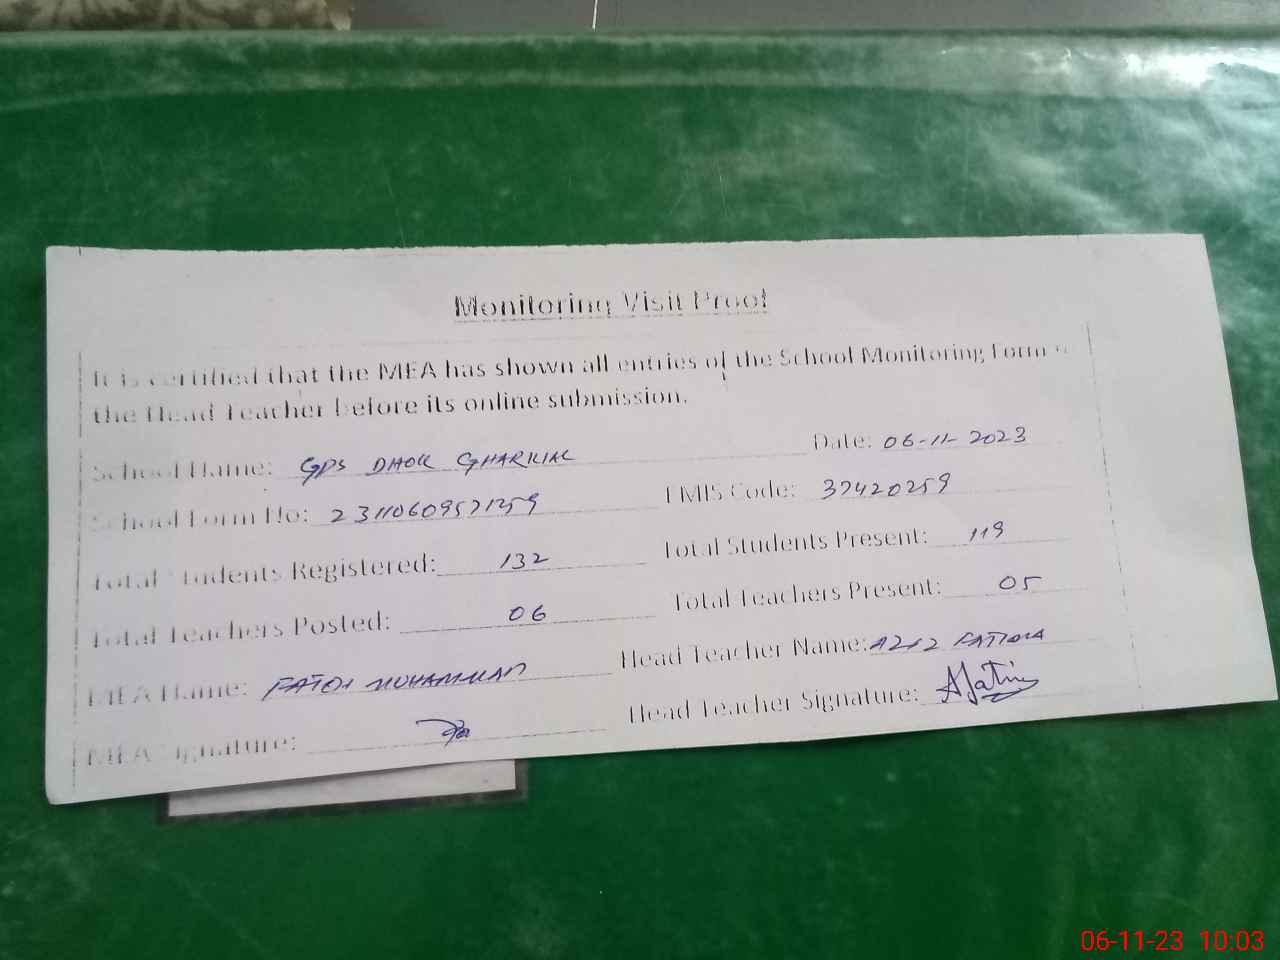 Monitoring Visit Proof
It is certified that the MEA has shown all entries of the School Monitoring Form
the Head Teacher before its online submission.
School Name: GPS DHOK GHARKIAL Date: 06-11-2023
School Form No: EMIS Code: 37420259
Total Students Registered: 132 Total Students Present: 119
Total Teachers Posted: 06 Total Teachers Present: 05
MEA Name: MUHAMMAD Head Teacher Name: FATIMA
MEA Signature: Head Teacher Signature:
06-11-23 10:03